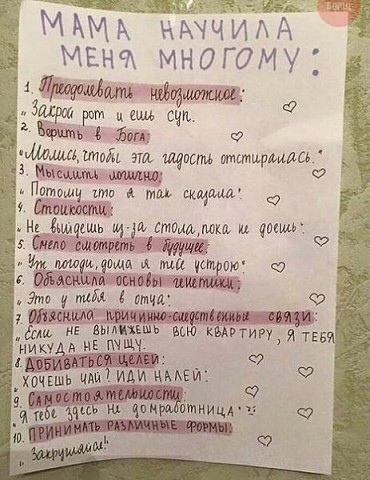 БОРЩ
МАМА НАУЧИЛА
МЕНЯ МНОГОМУ:
1. Преодолевать невозможное:
„Закрой рот и ешь суп.
2. Верить в Бога:
„Молись, чтобы эта гадость отстиралась."
3. Мыслить логично:
„Потому что я так сказала"
4. Стойкости:
„Не выйдешь из-за стола, пока не доешь"
5. Смело смотреть в будущее:
„Уж погоди, дома я тебе устрою"
6. Объяснила основы генетики:
„Это у тебя в отца"
7. Объяснила причинно-следственные связи:
„Если не вылижешь всю квартиру, я тебя
никуда не пущу.
8. Добиваться целей:
„Хочешь чай? Иди налей"
9. Самостоятельности:
„Я тебе здесь не домработница"
10. Принимать различные формы:
„Закругляйся!"